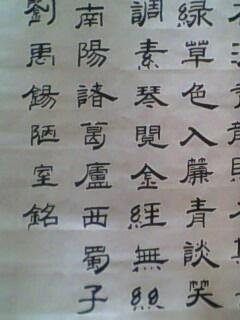 綠草色入簾青談笑
調素琴閱金經無絲
南陽諸葛廬西蜀子
劉禹錫陋室銘